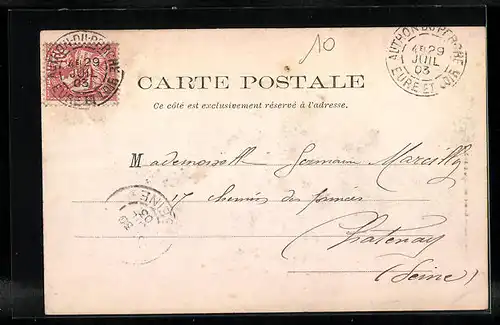 10
AUTHON-DU-PERCHE
4E 29
JUIL
03
EURE ET LOIR
AUTHON-DU-PERCHE
4E 29
JUIL
03
EURE ET LOIR
CARTE POSTALE
Ce côté est exclusivement réservé à l'adresse.
Mademoiselle Germaine Marcilly
17 chemin des princes
Chatenay
(Seine)
SEINE
03